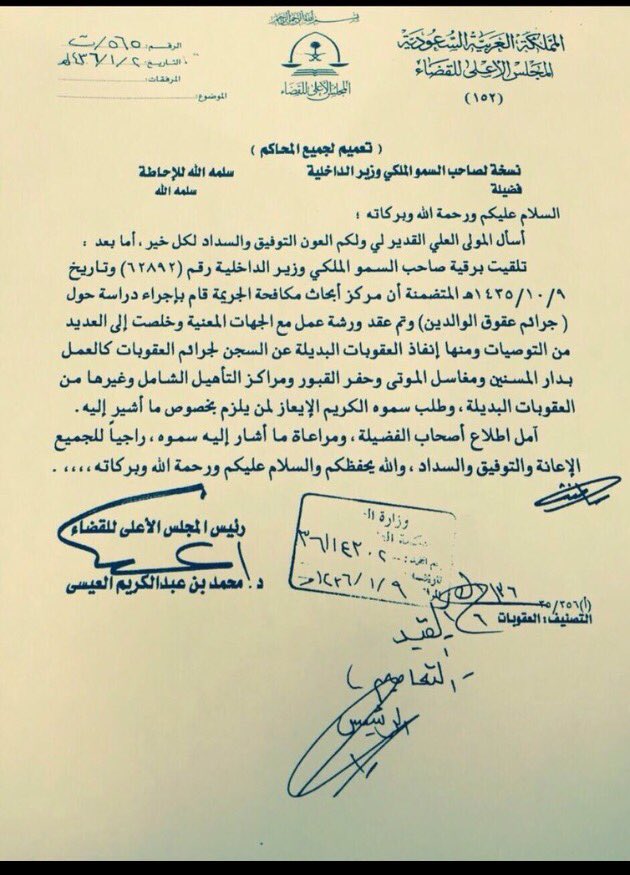 بسم الله الرحمن الرحيم
المملكة العربية السعودية
المجلس الأعلى للقضاء
(١٥٢)
المجلس الأعلى للقضاء
الرقم: ٥٦٥/ت
التاريخ: ١٤٣٦/١/٢هـ
المرفقات:
الموضوع:
( تعميم لجميع المحاكم )
نسخة لصاحب السمو الملكي وزير الداخلية سلمه الله للإحاطة
فضيلة سلمه الله
السلام عليكم ورحمة الله وبركاته ؛
أسأل المولى العلي القدير لي ولكم العون التوفيق والسداد لكل خير، أما بعد :
تلقيت برقية صاحب السمو الملكي وزير الداخلية رقم (٦٢٨٩٢) وتاريخ
١٤٣٥/١٠/٩هـ المتضمنة أن مركز أبحاث مكافحة الجريمة قام بإجراء دراسة حول
( جرائم عقوق الوالدين) وتم عقد ورشة عمل مع الجهات المعنية وخلصت إلى العديد
من التوصيات ومنها إنفاذ العقوبات البديلة عن السجن لجرائم العقوبات كالعمل
بدار المسنين ومغاسل الموتى وحفر القبور ومراكز التأهيل الشامل وغيرها من
العقوبات البديلة، وطلب سموه الكريم الإيعاز لمن يلزم بخصوص ما أشير إليه.
آمل اطلاع أصحاب الفضيلة، ومراعاة ما أشار إليه سموه، راجياً للجميع
الإعانة والتوفيق والسداد، والله يحفظكم والسلام عليكم ورحمة الله وبركاته ،،،، .
رئيس المجلس الأعلى للقضاء
د. محمد بن عبدالكريم العيسى
وزارة
٣٦/١٤٣٠٢
١٤٣٦/١/٩
(أ)٣٥/٢٥٦
التصنيف: العقوبات ٦
القيد
التعاميم
الرئيس